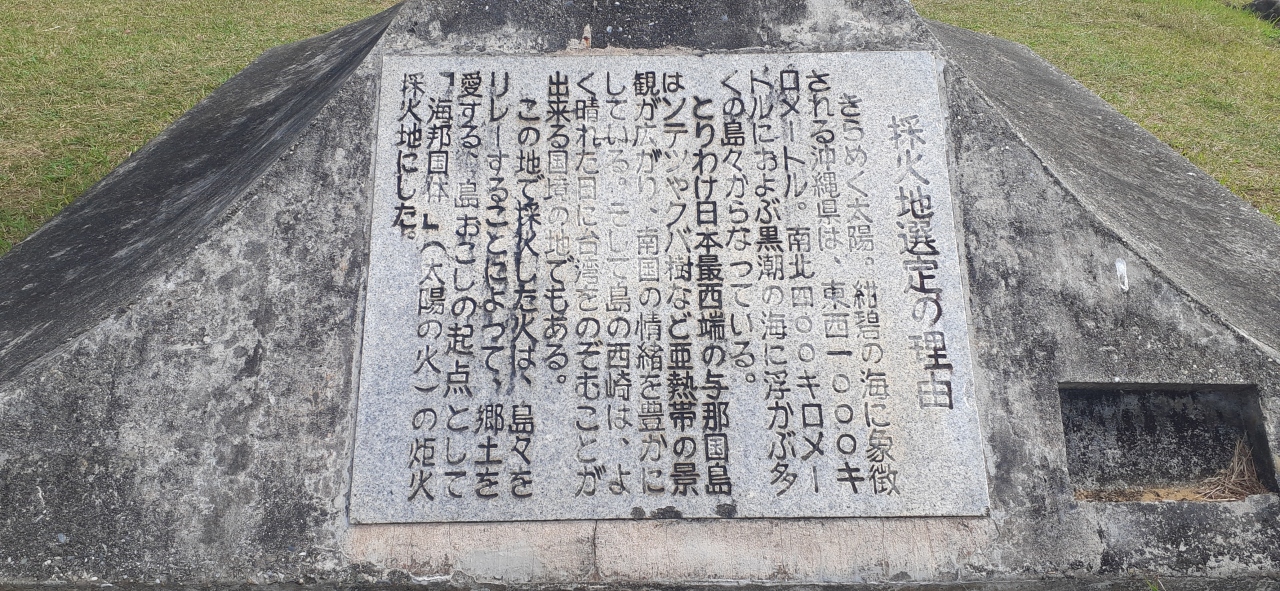 採火地選定の理由
きらめく太陽。紺碧の海に象徴
される沖縄県は、東西一〇〇〇キ
ロメートル。南北四〇〇キロメー
トルにおよぶ黒潮の海に浮かぶ多
くの島々からなっている。
とりわけ日本最西端の与那国島
はソテツやクバ樹など亜熱帯の景
観が広がり、南国の情緒を豊かに
している。そして島の西崎は、よ
く晴れた日に台湾をのぞむことが
出来る国境の地でもある。
この地で採火した火は、島々を
リレーすることによって、郷土を
愛する、島おこしの起点として
「海邦国体」(太陽の火)の炬火
採火地にした。